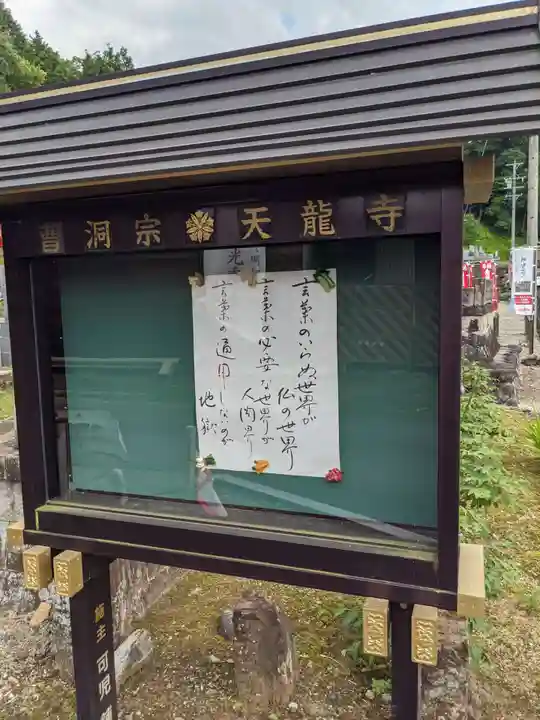 曹洞宗 天龍寺
言葉のいらぬ世界が
仏の世界
言葉の必要な世界が
人間界
言葉の通用しないのが
地獄
施主 可児